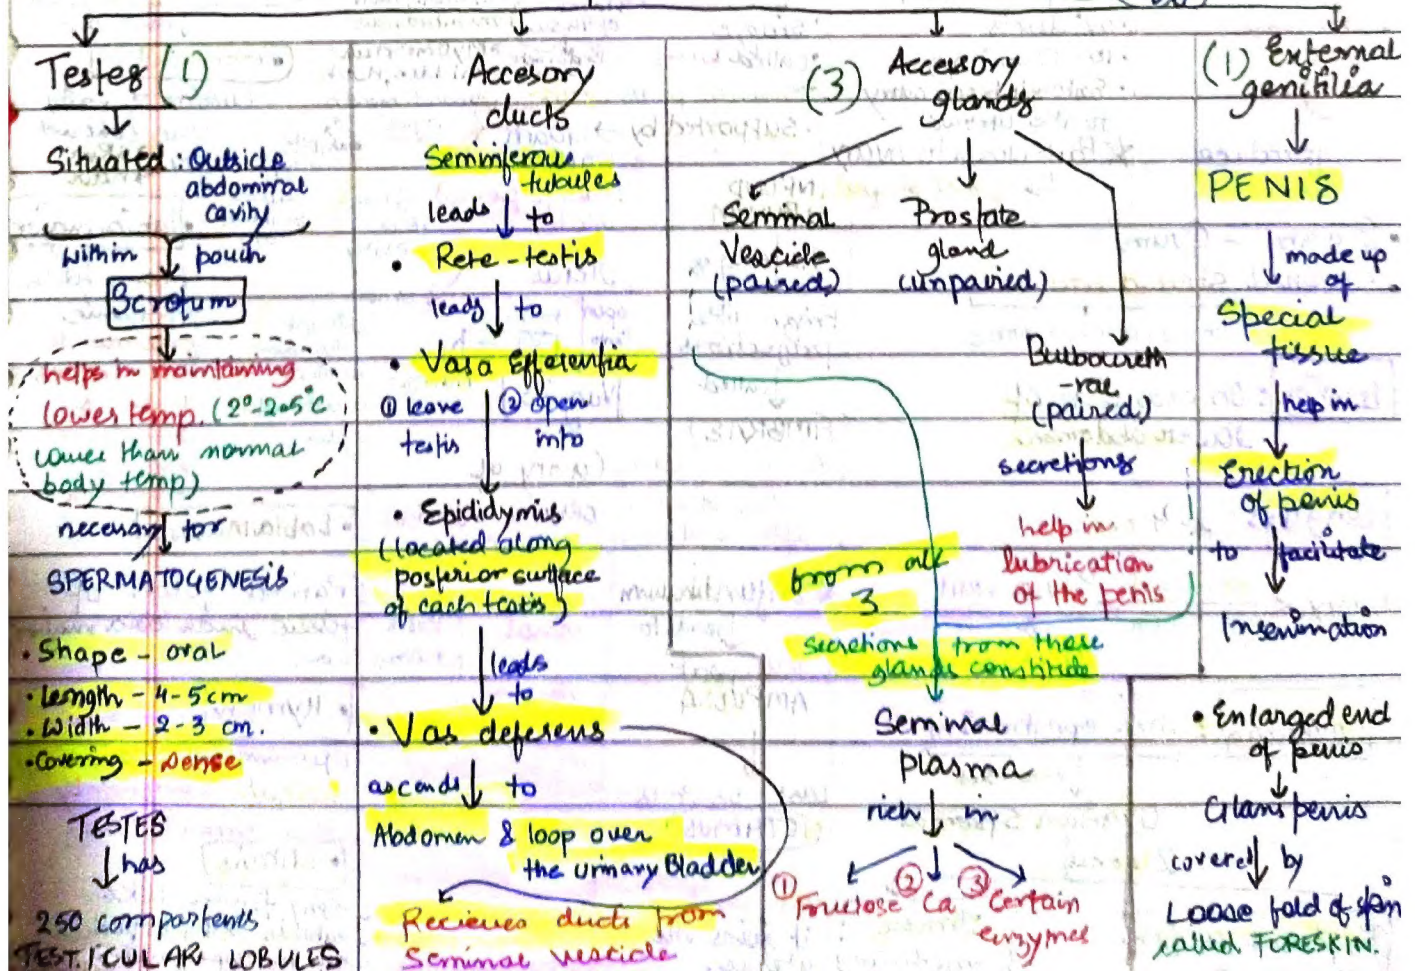 Testes (1)
Situated : Outside
abdominal
cavity
within pouch
Scrotum
helps in maintaining
lower temp. (2°-2.5°C
lower than normal
body temp)
necessary for
SPERMATOGENESIS
• Shape - oval
• Length - 4-5cm
• Width - 2-3 cm.
• Covering - Dense
TESTES
has
250 compartents
TESTICULAR LOBULES
Accesory
ducts
Seminiferous
tubules
leads to
• Rete-testis
leads to
• Vasa Efferentia
① leave ② open
testis into
• Epididymis
(located along
posterior surface
of each testis)
leads
to
• Vas deferens
ascends to
Abdomen & loop over
the urinary Bladder
Recieves ducts from
Seminal vesicle
(3) Accessory
glands
Seminal
Vesicle
(paired)
Prostate
gland
(unpaired)
Bulboureth
-rae
(paired)
secretions
help in
lubrication
of the penis
from all
3
secretions from these
glands constitide
Seminal
plasma
rich in
① Fructose ② Ca ③ Certain
enzymes
(1) External
genitilia
PENIS
made up
of
Special
tissue
help in
Erection
of penis
to facilitate
Insemination
• Enlarged end
of penis
Glans penis
covered by
Loose fold of skin
called FORESKIN.